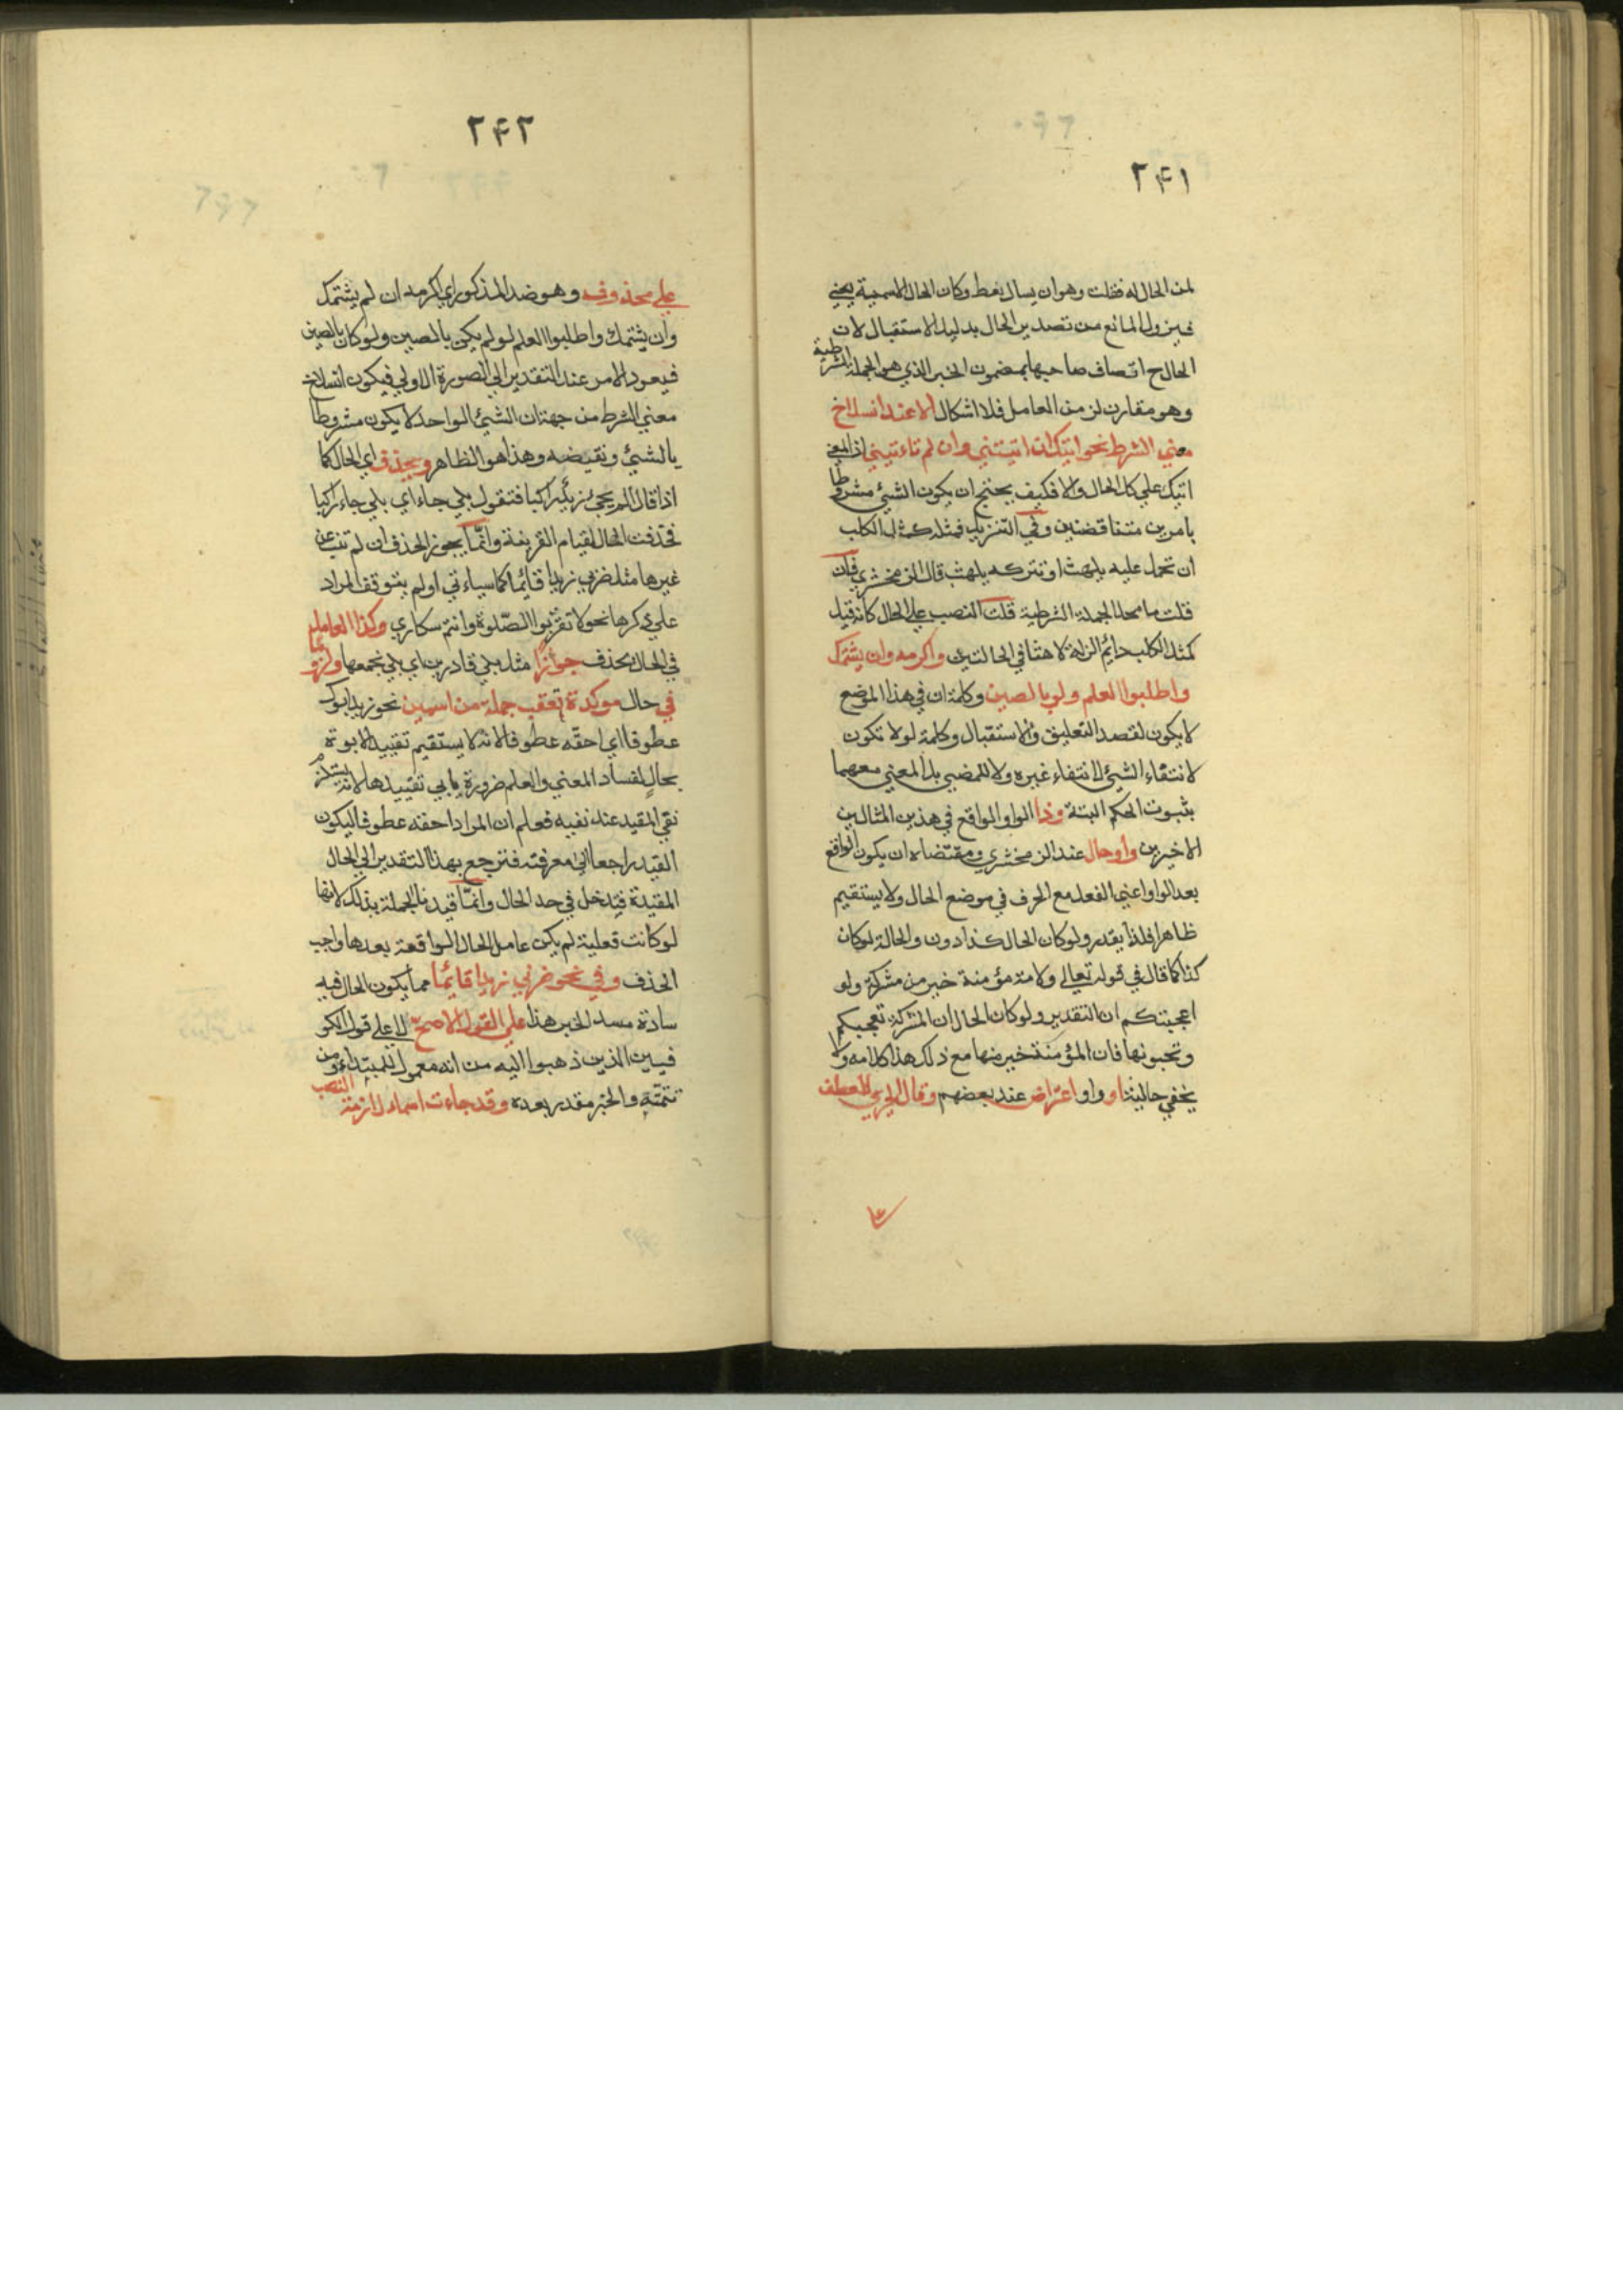 ٢٤١
لمن الحال له فقلت وهو ان يسال يعط وكان الحال الاسمية يعني
فيزول المانع من تصدير الحال بدليل الاستقبال لان
الحال ح اتصاف صاحبها بمضمون الخبر الذي هو الجملة الشرطية
وهو مقارن لزمن العامل فلا اشكال الا عند انسلاخ
معني الشرط نحو اتيك ان اتيتني وان لم تاءتيني اذ المعني
اتيك علي كل الحال والا فكيف يحتج ان يكون الشيئ مشروطا
بامرين متناقضين وفي التنزيل فمثله كمثل الكلب
ان تحمل عليه يلهث او تتركه يلهث قال الزمخشري فان
قلت ما محل الجملة الشرطية قلت النصب علي الحال كانه قيل
كمثل الكلب دايم الزلة لاهثا في الحالتين واكرمه وان يشتمك
واطلبوا العلم ولو بالصين وكلمة ان في هذا الموضع
لا يكون لقصد التعليق والاستقبال وكلمة لو لا تكون
لانتفاء الشيئ لانتفاء غيره ولا للمضي بل المعني معهما
بثبوت الحكم البتة وذا الواو الواقع في هذين المثالين
الاخيرين واو حال عند الزمخشري ومقتضاه ان يكون الواقع
بعد الواو اعني الفعل مع الحرف في موضع الحال ولا يستقيم
ظاهرا فلذا يقدر ولو كان الحال كذا دون والحالة لو كان
كذا كما قال في قوله تعالي ولامة مؤمنة خير من مشركة ولو
اعجبتكم ان التقدير ولو كان الحال ان المشركة تعجبكم
وتحبونها فان المؤمنة خير منها مع ذلك هذا كلامه ولا
يخفي حاليتها او واو اعتراض عند بعضهم وقال الجزي للعطف
٢٤٢
علي محذوف وهو ضد المذكور اي اكرمه ان لم يشتمك
وان يشتمك واطلبوا العلم لو لم يكن بالصين ولو كان بالصين
فيعود الامر عند التقدير الي الصورة الاولي فيكون انسلاخ
معني الشرط من جهة ان الشيئ الواحد لا يكون مشروطا
بالشيئ ونقيضه وهذا هو الظاهر ويحذف اي الحال كما
اذا قال الم يجئ زيد راكبا فتقول بلي جاء اي بلي جاء راكبا
فحذفت الحال لقيام القرينة وانما يجوز الحذف ان لم تنب عن
غيرها مثل ضربي زيدا قائما كما سياءتي او لم يتوقف المراد
علي ذكرها نحو لا تقربوا الصلوة وانتم سكاري وكذا العامل
في الحال يحذف جوازا مثل بلي قادرين اي بلي نجمعها ولزوما
في حال موكدة تعقب جملة من اسمين نحو زيد ابوك
عطوفا اي احقه عطوفا لانه لا يستقيم تقييد الابوة
بحال لفساد المعني والعلم ضرورة يابي تقييدها لانه يستلزم
نفي المقيد عند نفيه فعلم ان المراد احقه عطوفا ليكون
القيد راجعا الي معرفته فترجع بهذا التقدير الي الحال
المقيدة فيدخل في حد الحال وانما قيدنا الجملة بذلك لانها
لو كانت فعلية لم يكن عامل الحال الواقعة بعدها واجب
الحذف وفي نحو ضربي زيدا قائما مما يكون الحال فيه
سادة مسد الخبر هذا علي القول الاصح لا علي قول الكو
فيين الذين ذهبوا اليه من انه معمول للمبتداء ومن
تتمته والخبر مقدر بعده وقد جاءت اسماء لازمة النصب